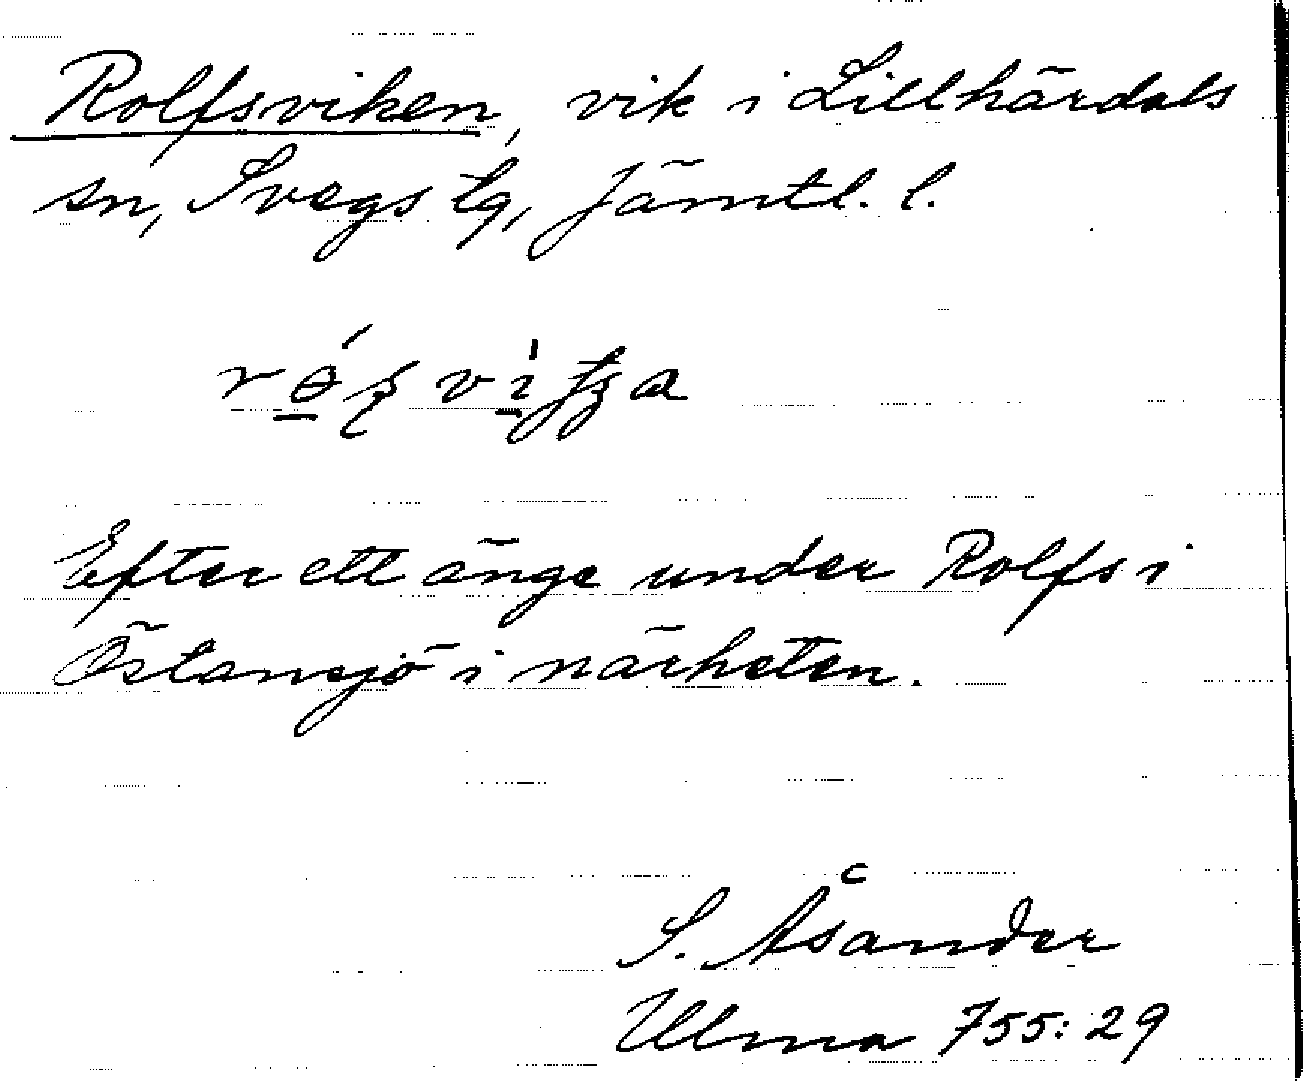 Rolfsviken, vik i Lillhärdals
sn, Svegs tg, Jämtl. l.
Efter ett änge under Rolfs i
Östansjö i närheten.
S. Åsander
Ulma 755:29